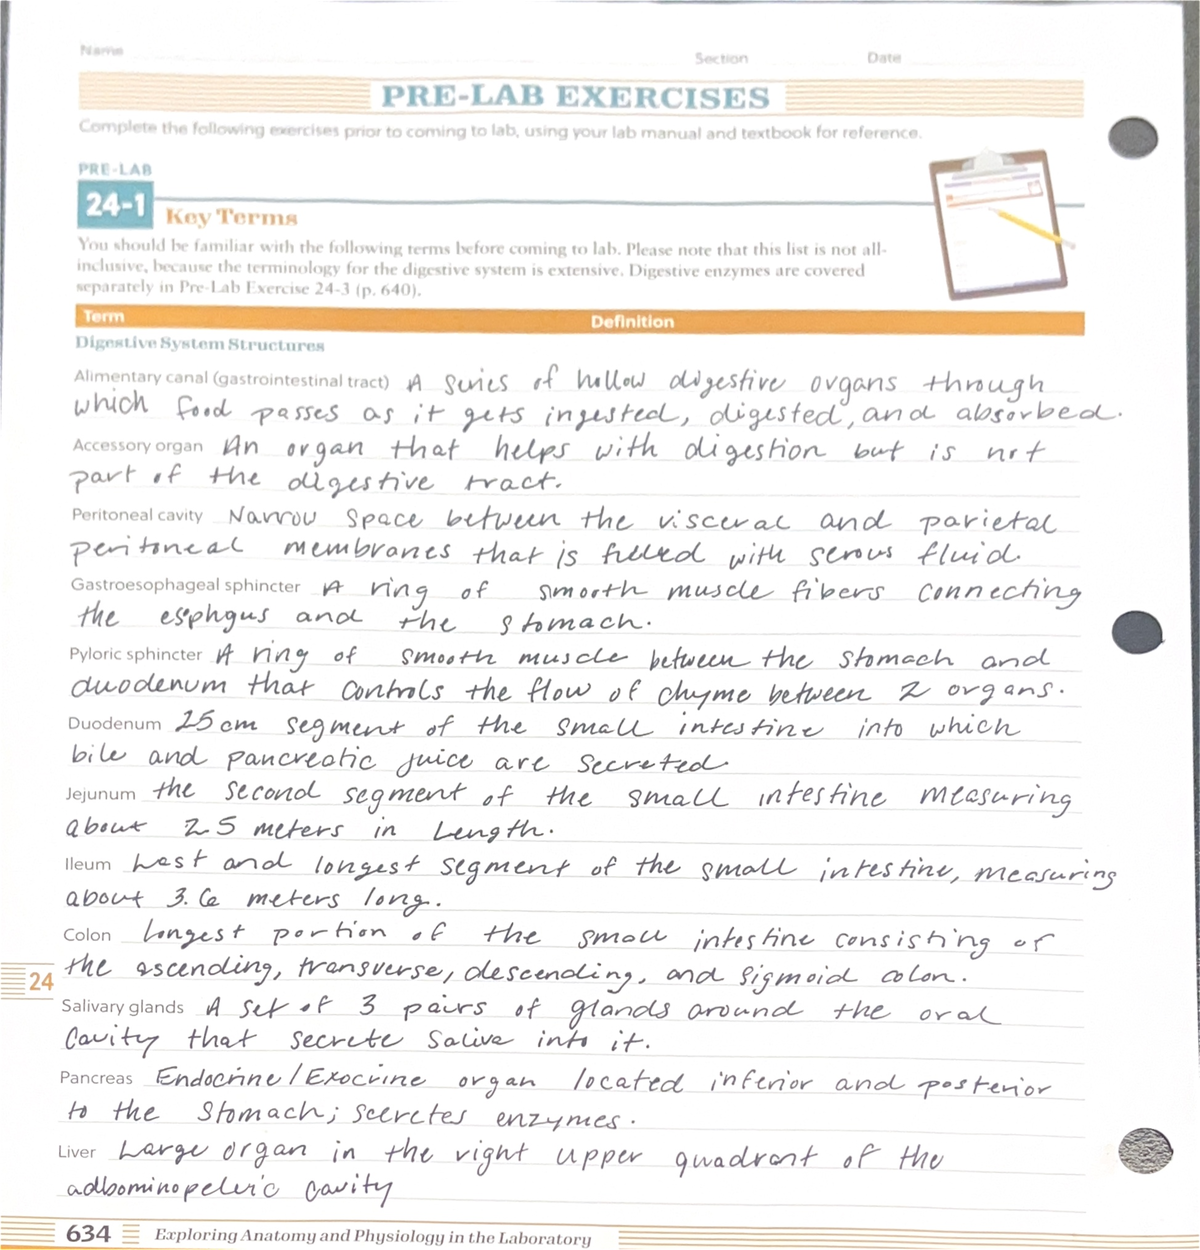 Name Section Date
PRE-LAB EXERCISES
Complete the following exercises prior to coming to lab, using your lab manual and textbook for reference.
PRE-LAB
24-1 Key Terms
You should be familiar with the following terms before coming to lab. Please note that this list is not all-
inclusive, because the terminology for the digestive system is extensive. Digestive enzymes are covered
separately in Pre-Lab Exercise 24-3 (p. 640).
Term Definition
Digestive System Structures
Alimentary canal (gastrointestinal tract) A series of hollow digestive organs through
which food passes as it gets ingested, digested, and absorbed.
Accessory organ An organ that helps with digestion but is not
part of the digestive tract.
Peritoneal cavity Narrow space between the visceral and parietal
peritoneal membranes that is filled with serous fluid.
Gastroesophageal sphincter A ring of smooth muscle fibers connecting
the esphgus and the stomach.
Pyloric sphincter A ring of smooth muscle between the stomach and
duodenum that controls the flow of chyme between 2 organs.
Duodenum 25cm segment of the small intestine into which
bile and pancreatic juice are secreted.
Jejunum the second segment of the small intestine measuring
about 2.5 meters in length.
Ileum Last and longest segment of the small intestine, measuring
about 3.6 meters long.
Colon longest portion of the small intestine consisting of
the ascending, transverse, descending, and sigmoid colon.
24
Salivary glands A set of 3 pairs of glands around the oral
cavity that secrete saliva into it.
Pancreas Endocrine/Exocrine organ located inferior and posterior
to the stomach; secretes enzymes.
Liver Large organ in the right upper quadrant of the
adbominopelvic cavity
634 Exploring Anatomy and Physiology in the Laboratory